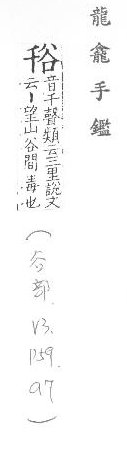 龍龕手鑑
谸
音千聲類云三里說文
云丨望山谷間毒也
(谷部.
V3.
P59.
a7)